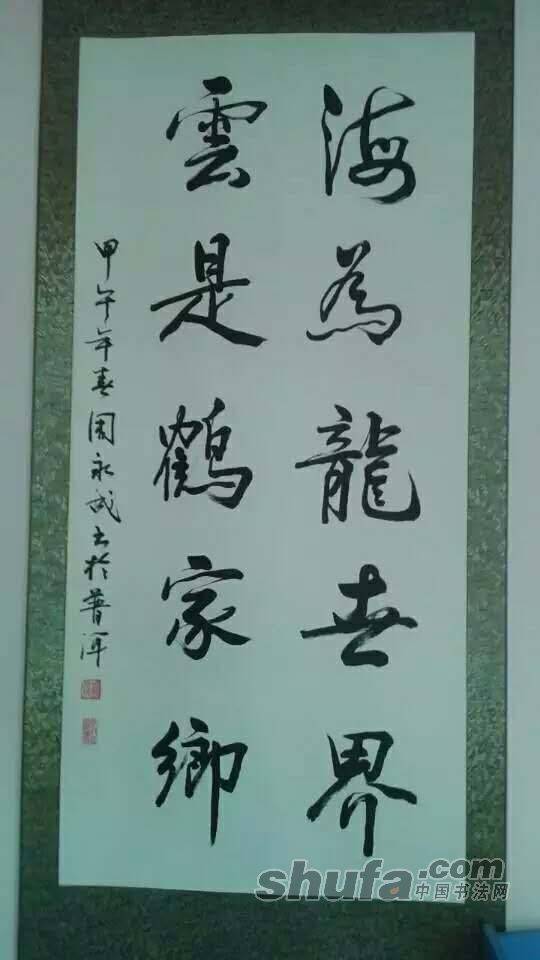 海為龍世界
雲是鶴家鄉
甲午年春周永成书於普洱
shufa.com
中国书法网